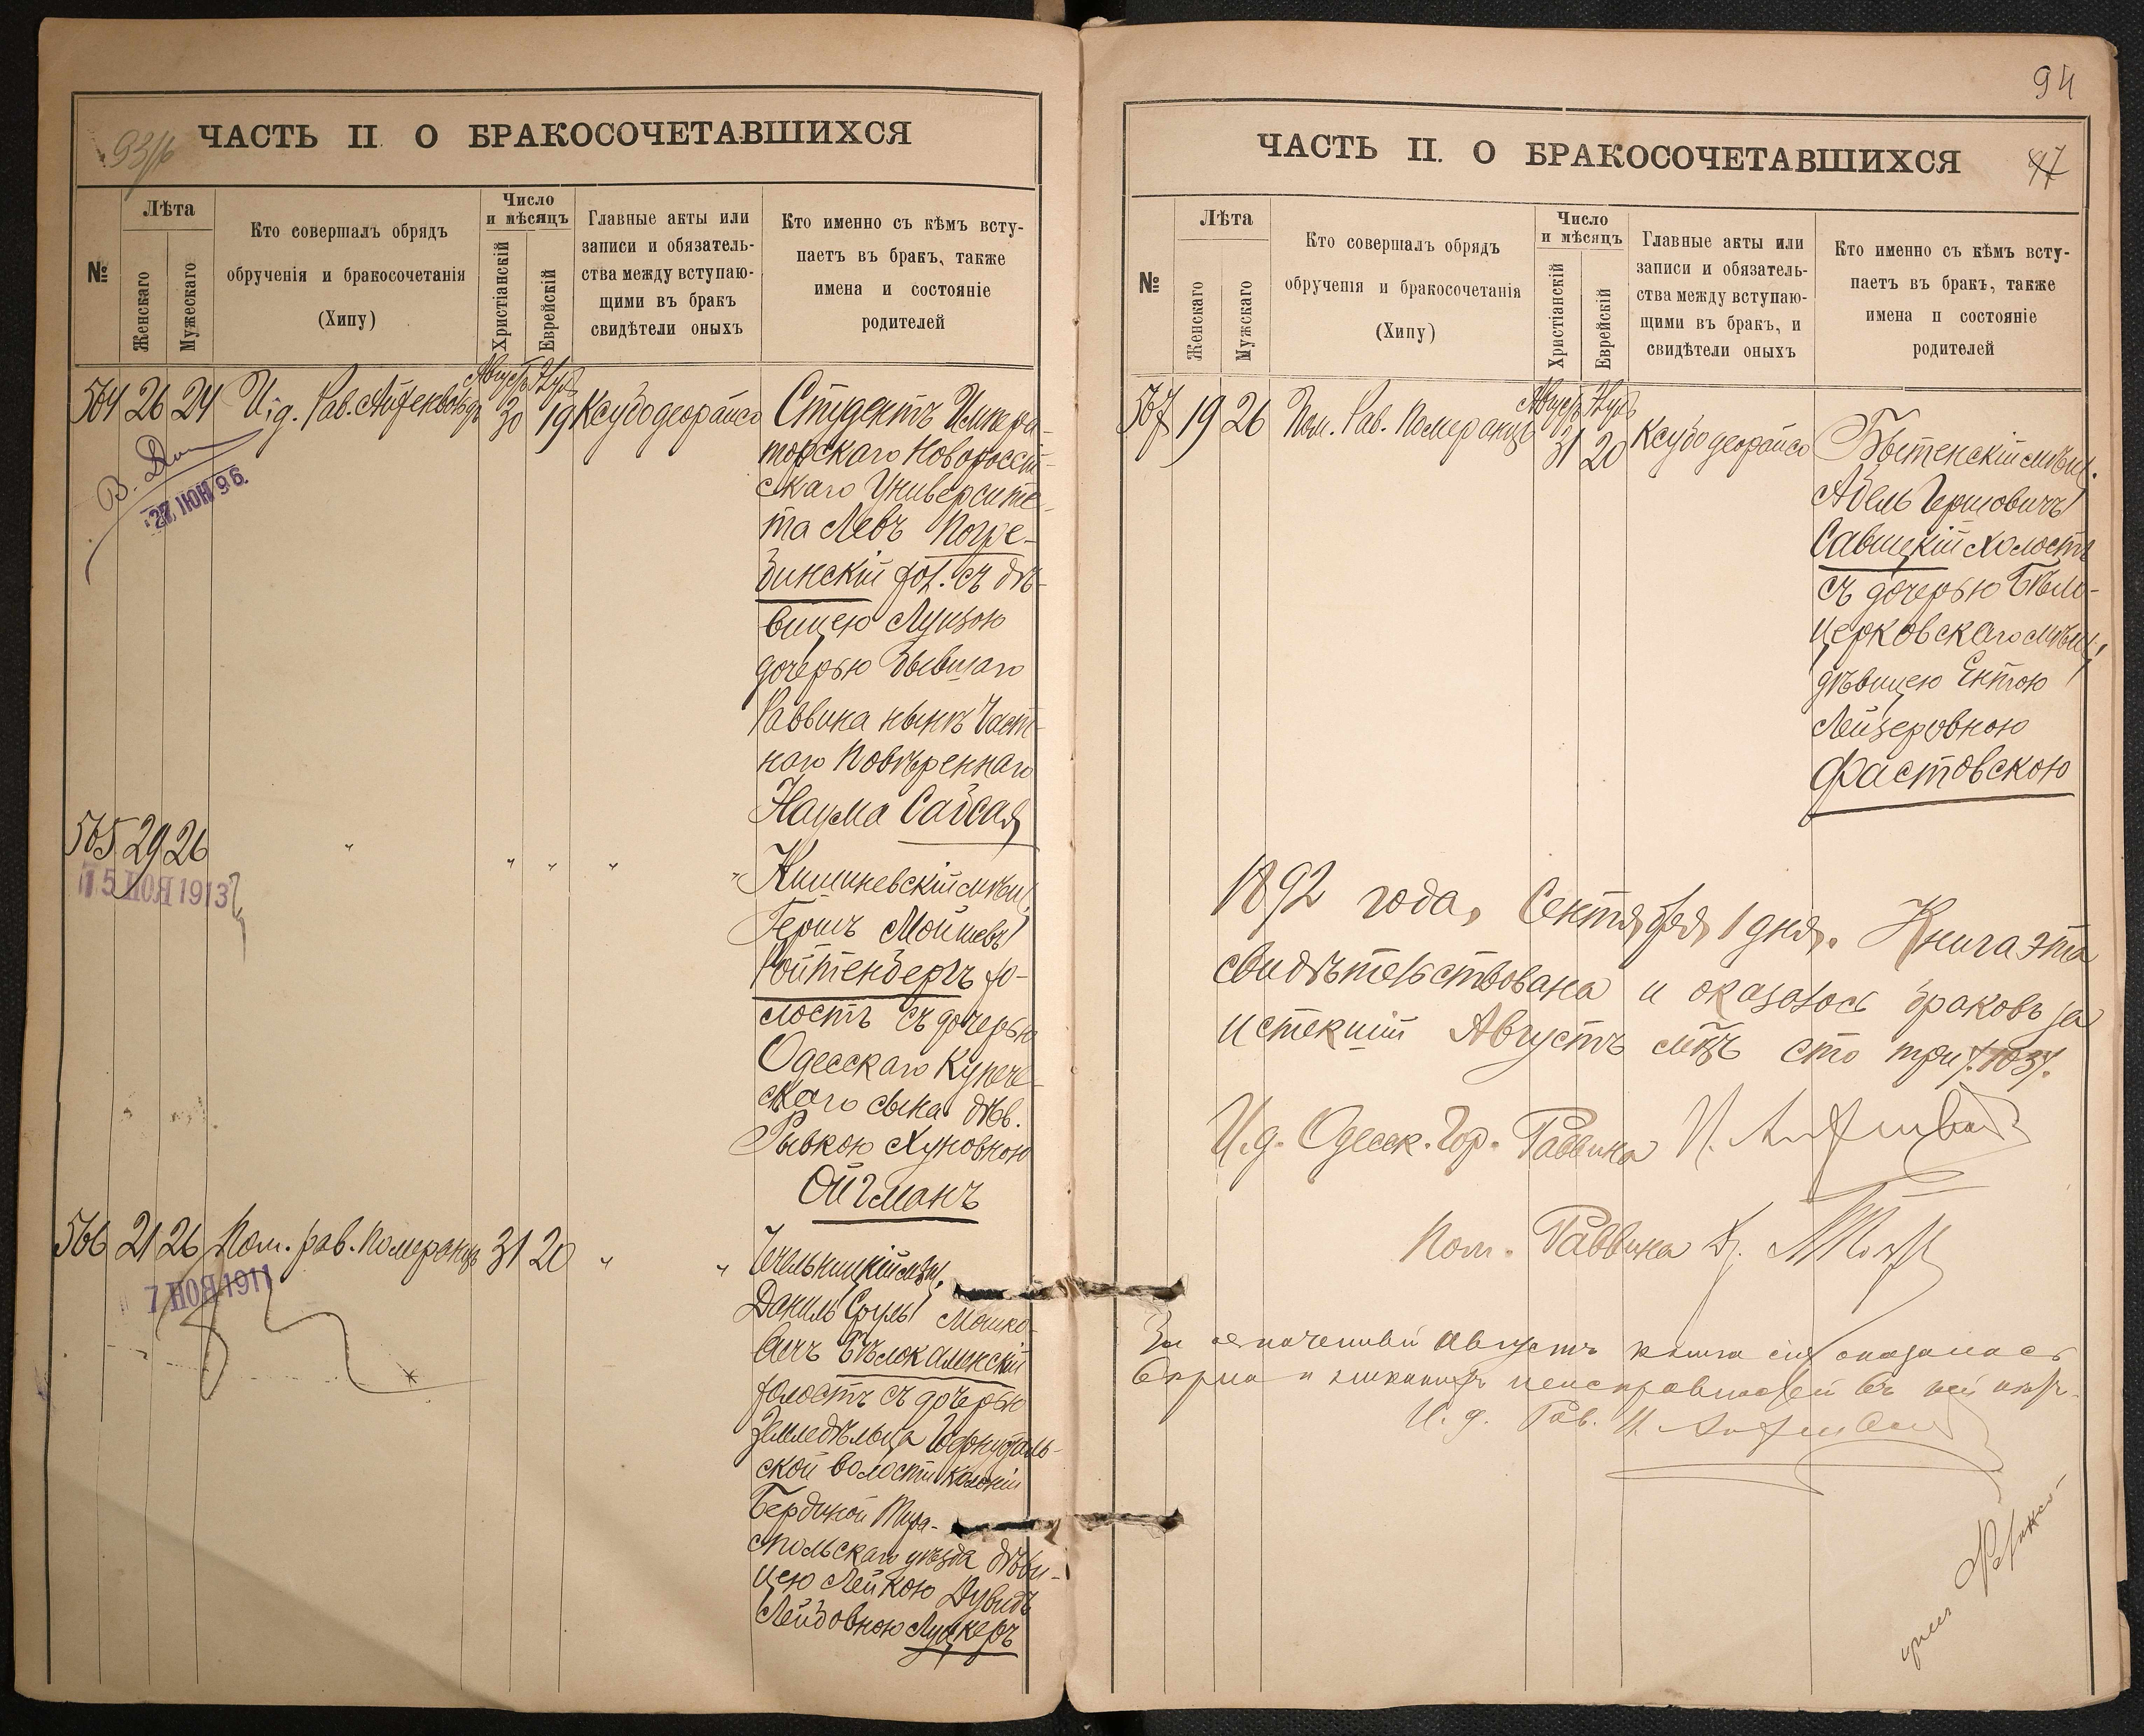 93/16
ЧАСТЬ II О БРАКОСОЧЕТАВШИХСЯ
№
Лѣта
Женскаго
Мужескаго
Кто совершалъ обрядъ
обрученія и бракосочетанія
(Хипу)
Число
и мѣсяцъ
Христіанскій
Еврейскій
Главные акты или
записи и обязатель-
ства между вступаю-
щими въ бракъ
свидѣтели оныхъ
Кто именно съ кѣмъ всту-
паетъ въ бракъ, также
имена и состояніе
родителей
564 26 24 И.д. Рав. Айзенвальдъ Августъ 30 Элулъ 19 Ксубо деорайсо Студентъ Импера-
торскаго Новороссій-
скаго Университе-
та Левъ Погре-
бинскій хол. съ дѣ-
вицею Луизою
дочерью бывшаго
Раввина нынѣ Част-
наго Повѣреннаго
Наума Сабсая
27 ІЮН 96
565 29 26 " " " " " Кишиневскій мѣщ.
Гершъ Мойшевъ
Ройтенбергъ хо-
лостъ съ дочерью
Одесскаго Купече-
скаго сына дѣв.
Рывкою Хуновною
Ойгманъ
15 НОЯ 1913
566 21 26 Пом. рав. Померанцъ 31 20 " "
Даниль Сруль Мошко-
вичъ Бѣлокаменскій
холостъ съ дочерью
Земледѣльца
ской волости колоніи
Тира-
спольскаго уѣзда дѣви-
цею Лейкою Дувидъ
Лейбовною Луцкеръ
7 НОЯ 1911
94
ЧАСТЬ II. О БРАКОСОЧЕТАВШИХСЯ
47
№
Лѣта
Женскаго
Мужскаго
Кто совершалъ обрядъ
обрученія и бракосочетанія
(Хипу)
Число
и мѣсяцъ
Христіанскій
Еврейскій
Главные акты или
записи и обязатель-
ства между вступаю-
щими въ бракъ, и
свидѣтели оныхъ
Кто именно съ кѣмъ всту-
паетъ въ бракъ, также
имена и состояніе
родителей
567 19 26 Пом. Рав. Померанцъ Августъ 31 Элулъ 20 Ксубо деорайсо Бытенскій мѣщ.
Абель Гершовичъ
Савицкій холостъ
съ дочерью Бѣло-
церковскаго мѣщ.
дѣвицею Ентою
Лейзеровною
Фастовскою
1892 года, Сентября 1 дня. Книга эта
свидѣтельствована и оказалось браковъ за
истекшій Августъ мѣс. сто три /:103:/.
И.д. Одесск. Гор. Раввина
Пом. Раввина
За означенный Августъ книга сія оказалась
вѣрна и никакихъ неисправностей въ ней нѣтъ.
И. д. Рав.